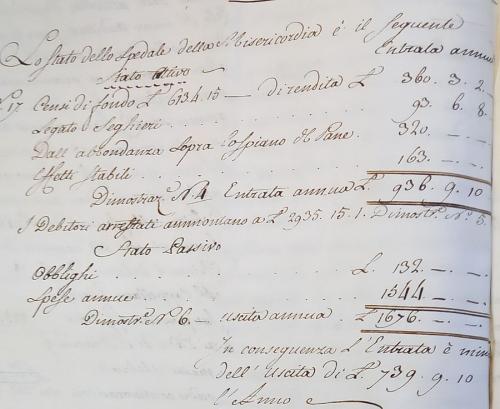 Lo Stato dello Spedale della Misericordia é il seguente
Entrata annua
Stato Attivo
17 Censi di fondo £ 6134.15 — di rendita £ 360. 3. 2.
Legato Seghieri . . . . . . . . 93. 6. 8.
Dall'abbondanza sopra lo spiano del Pane. 320. — —
Effetti stabili . . . . . . . . 163. — —
Dimostraz.e N.4 Entrata annua £. 936. 9. 10
I Debitori arrestati ammontano a £ 2935. 15. 1. Dimostr.e N.o 5.
Stato Passivo
Obblighi . . . . . . . . £. 132. — —.
Spese annue . . . . . . . . 1544 — —.
Dimostr.e N.o 6. — uscita annua. £ 1676. — —.
In conseguenza l'Entrata è min
dell'Uscita di £. 739. 9. 10
l'Anno